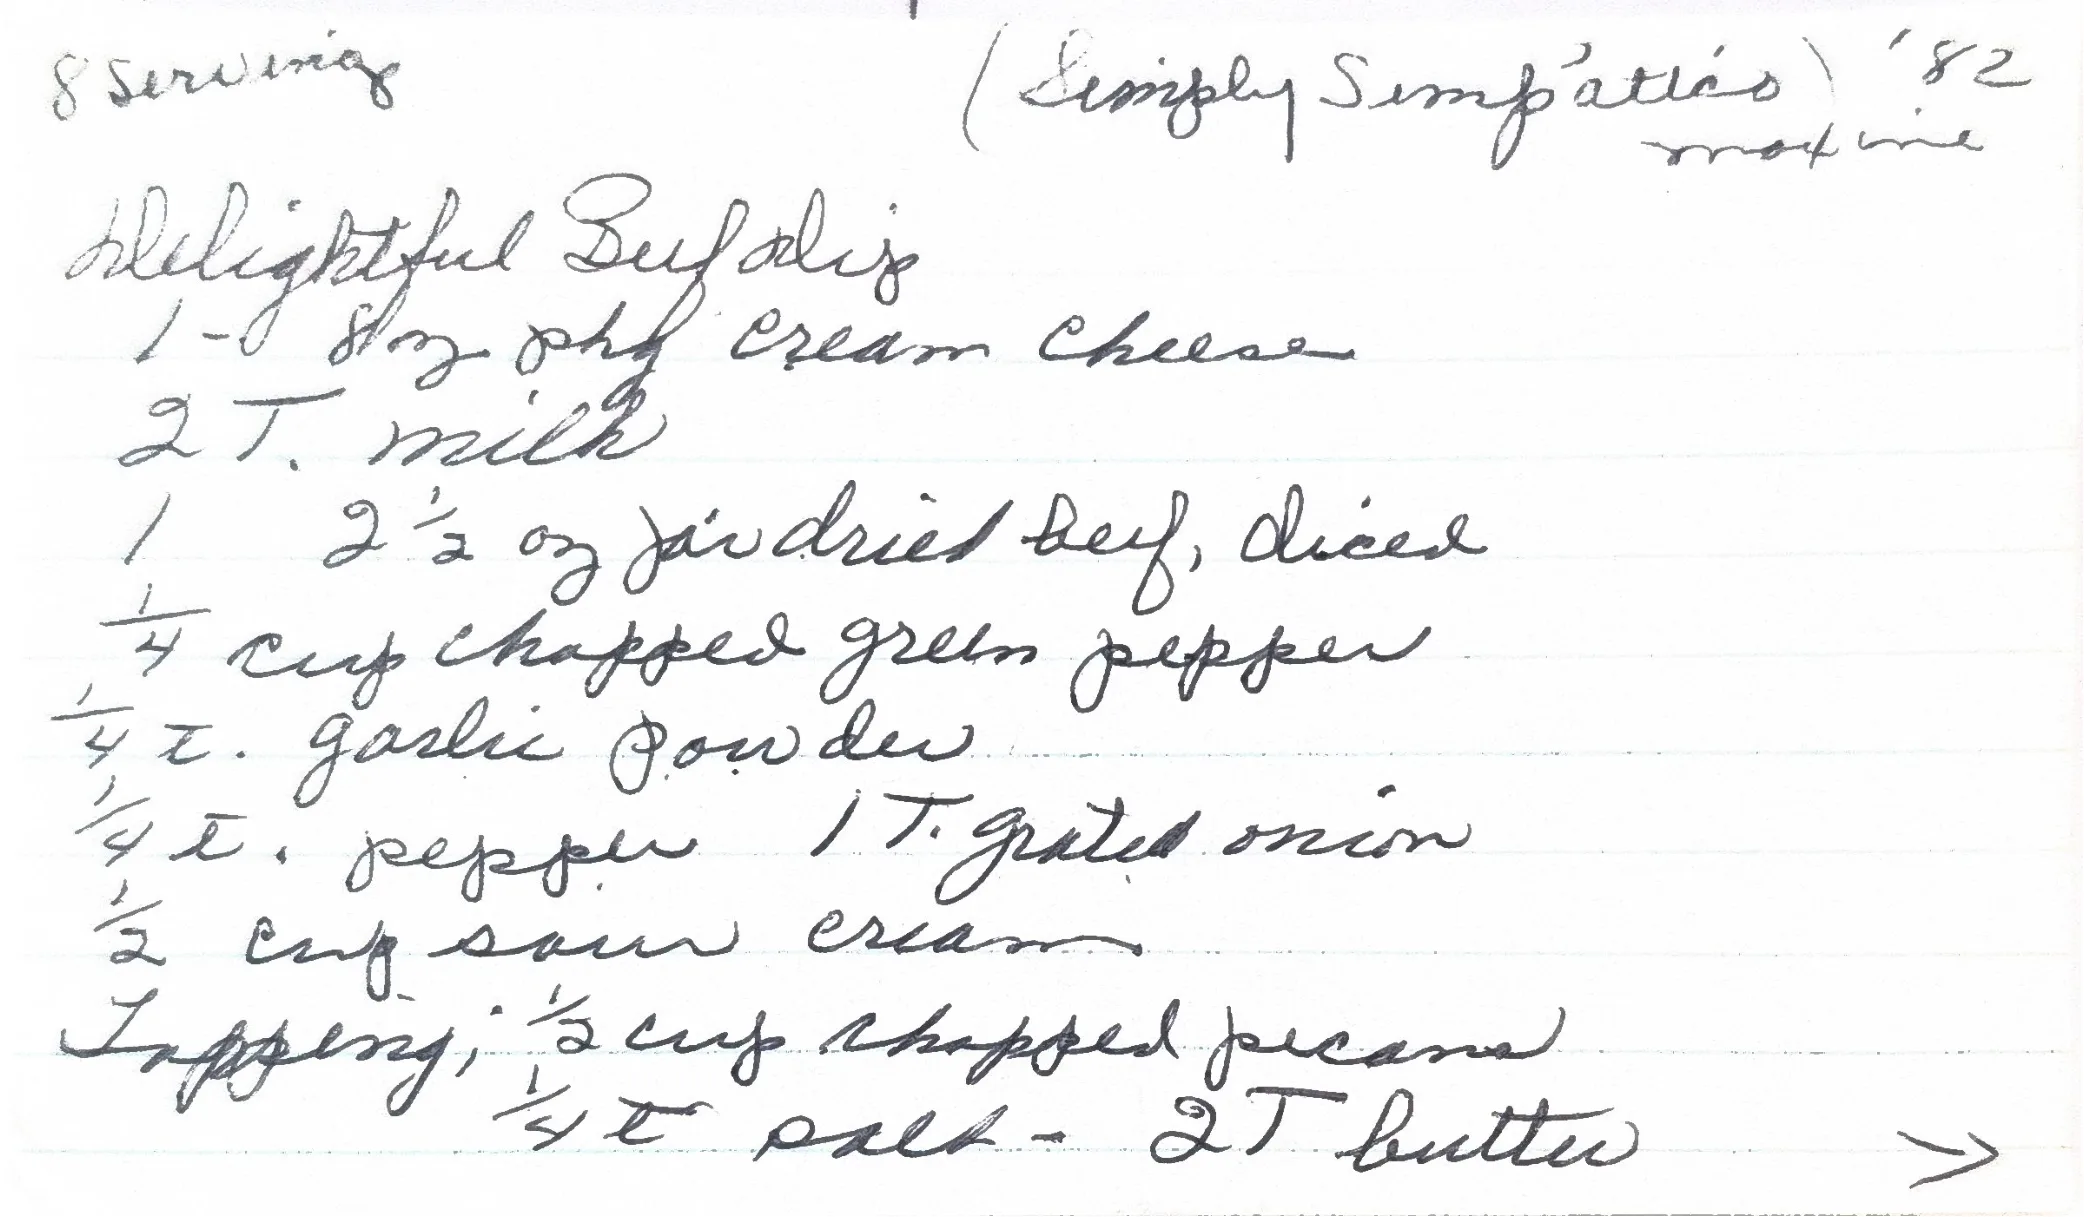 8 Servings (Simply Simpático) '82
maxine
Delightful Beef Dip
1 - 8 oz pkg cream cheese
2 T. milk
1 2 1/2 oz jar dried beef, diced
1/4 cup chopped green pepper
1/4 t. garlic powder
1/4 t. pepper 1 T. grated onion
1/2 cup sour cream
Topping; 1/2 cup chopped pecans
1/4 t salt - 2 T butter >